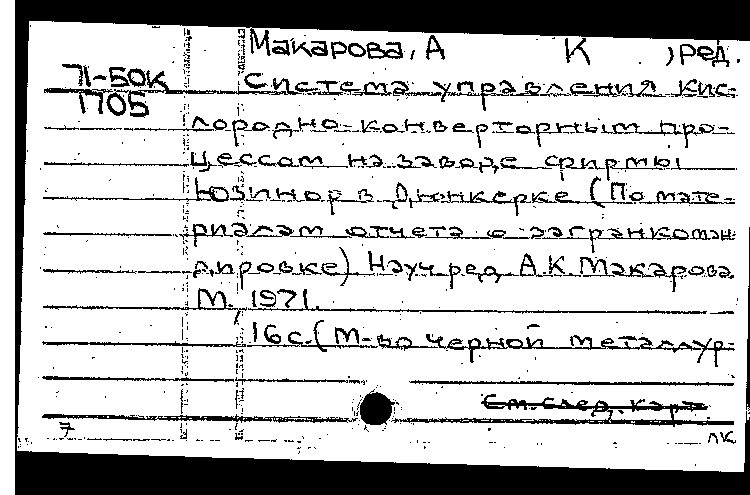 Макарова, А К , ред.
71-50к Система управления кис-
1705
лородно-конверторным про-
цессом на заводе фирмы
Юзинор в Дюнкерке (По мате-
риалам отчета о загранкоман-
дировке) Науч ред А.К. Макарова.
М. 1971.
16 с. (М-во черной металлур-
См. след. карт
7 ЛК